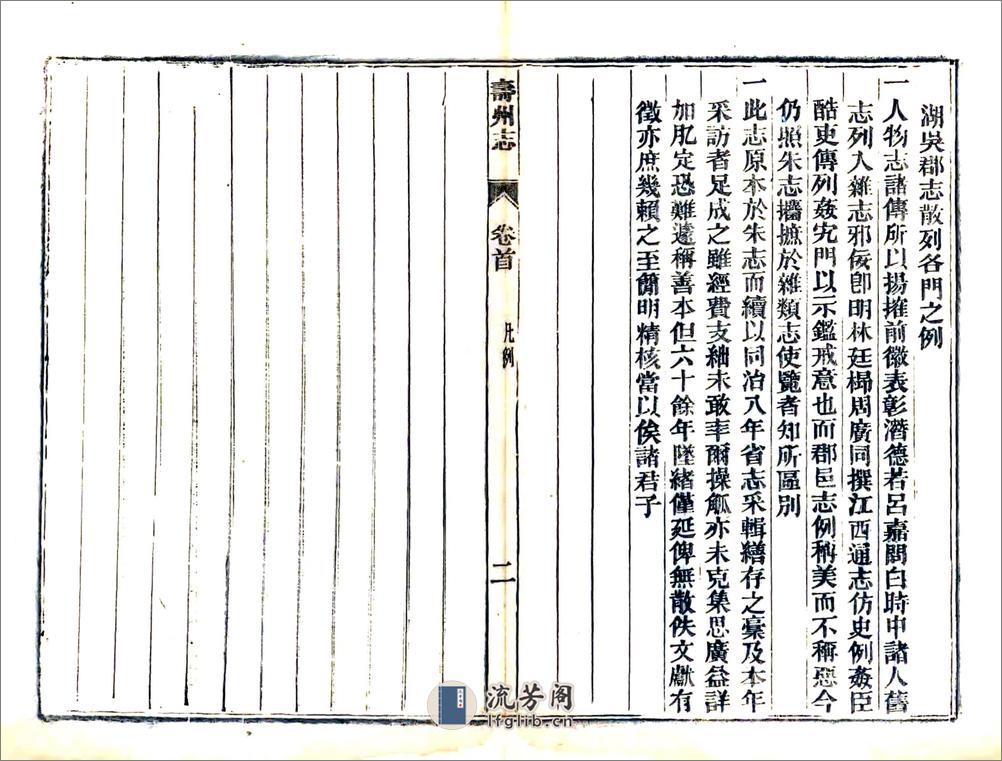 湖吳郡志散列各門之例
一人物志諸傳所以揚搉前徽表彰潛德若呂嘉問白時中諸人舊
志列入雜志邪佞卽明林廷㭿周廣同撰江西通志仿史例姦臣
酷吏傳列姦宄門以示鑑戒意也而郡邑志例稱美而不稱惡今
仍照朱志攟摭於雜類志使覽者知所區別
一此志原本於朱志而續以同治八年省志采輯繕存之稾及本年
采訪者足成之雖經費支絀未敢率爾操觚亦未克集思廣益詳
加訂定恐難遽稱善本但六十餘年墜緒僅延俾無散佚文獻有
徵亦庶幾賴之至簡明精核當以俟諸君子
壽州志
卷首
凡例
二
流芳阁
lfglib.cn